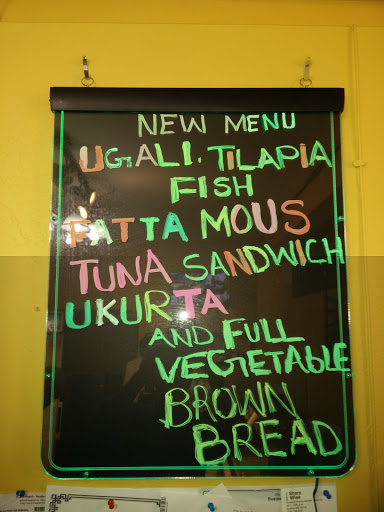 NEW MENU
UGALI. TILAPIA
FISH
FATTA MOUS
TUNA SANDWICH
UKURTA
AND FULL
VEGETABLE
BROWN
BREAD
Share
Wise